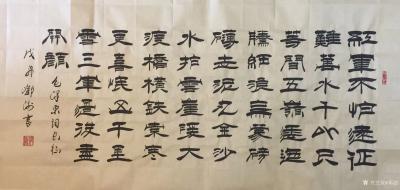 紅軍不怕遠征
難萬水千山只
等閒五嶺逶迤
騰細浪烏蒙磅
礴走泥丸金沙
水拍雲崖暖大
渡橋橫鐵索寒
更喜岷山千里
雪三軍過後盡
開顏 毛澤東詩長征
書